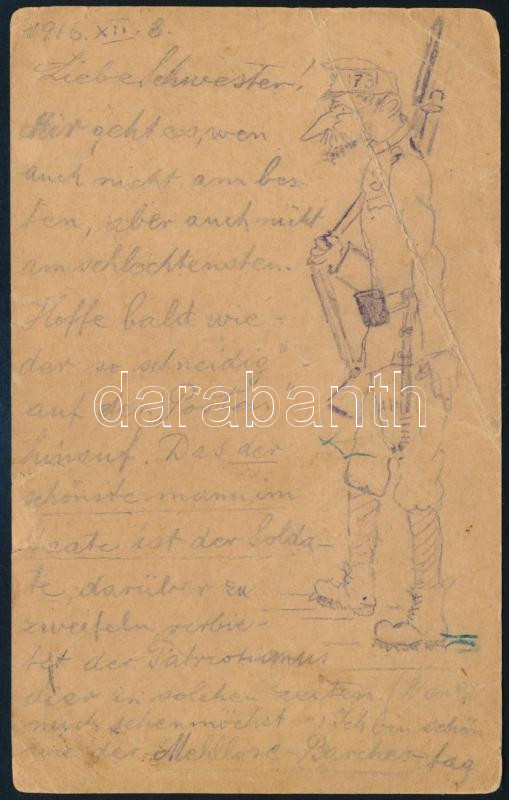 1916. XII. 8.
Liebe Schwester!
173
Mir geht es, wen
auch nicht am bes-
ten, aber auch nicht
am schlechtensten.
Hoffe bald wie-
der so „schneidig"
auf den
hinauf. Das der
schönste mann im
staate ist der Solda-
te, darüber zu
zweefeln verbie-
tet der Patriotismus
dier in solchen zeiten.
mich sehen möchst. Ich bin schön
wie der Barches-tag
darabanth